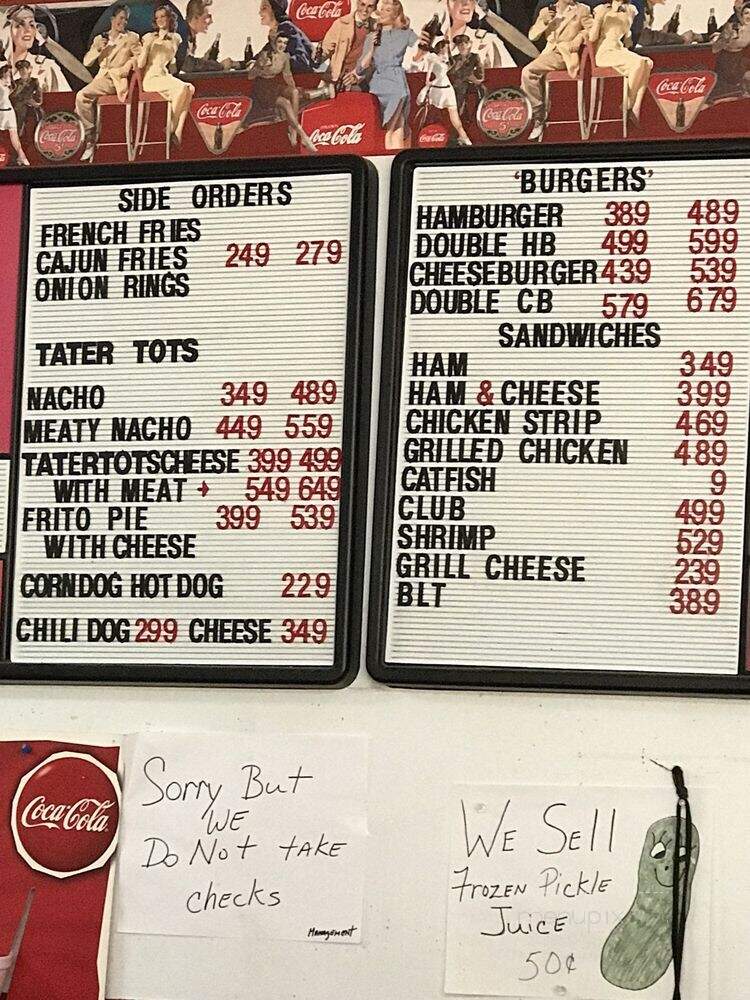 Coca-Cola
Coca-Cola
Coca-Cola
Coca-Cola
Coca-Cola
Coca-Cola
Coca-Cola
Coca-Cola
SIDE ORDERS
FRENCH FRIES
CAJUN FRIES 249 279
ONION RINGS
TATER TOTS
NACHO 349 489
MEATY NACHO 449 559
TATERTOTSCHEESE 399 499
WITH MEAT + 549 649
FRITO PIE 399 539
WITH CHEESE
CORNDOG HOT DOG 229
CHILI DOG 299 CHEESE 349
'BURGERS'
HAMBURGER 389 489
DOUBLE HB 499 599
CHEESEBURGER 439 539
DOUBLE CB 579 679
SANDWICHES
HAM 349
HAM & CHEESE 399
CHICKEN STRIP 469
GRILLED CHICKEN 489
CATFISH 9
CLUB 499
SHRIMP 529
GRILL CHEESE 239
BLT 389
Coca-Cola
Sorry But
WE
Do Not TAKE
checks
Management
WE Sell
Frozen Pickle
Juice
50¢